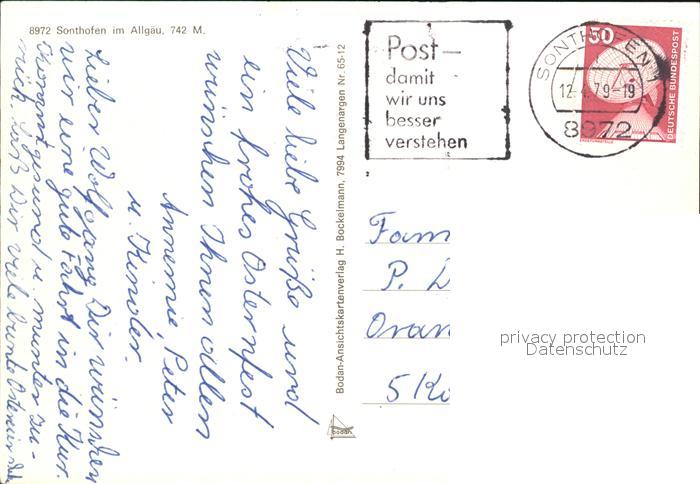 8972 Sonthofen im Allgäu, 742 M.
Viele liebe Grüße und
ein frohes Osterfest
wünschen Ihnen allen
Annemie, Peter
u. Kinder.
Lieber Wolfgang! Dir wünschen
wir eine gute Fahrt in die Kur.
Komm gesund u. munter zu-
rück. Laß Dir viele bunte Ostereier
Bodan-Ansichtskartenverlag H. Bockelmann, 7994 Langenargen Nr. 65-12
bodan
Post –
damit
wir uns
besser
verstehen
SONTHOFEN 1
12.4.79-19
8972
50
DEUTSCHE BUNDESPOST
Fam
P.
Oran
5 Kö
privacy protection
Datenschutz